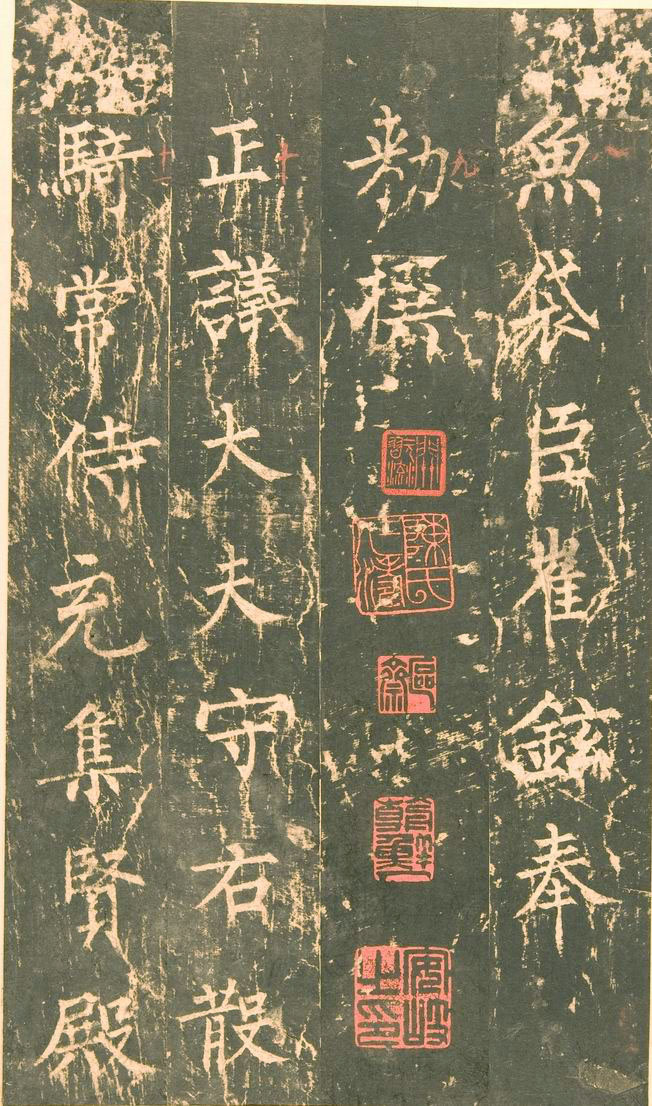 魚袋臣崔鉉奉
勑撰
正議大夫守右散
騎常侍充集賢殿
九
十
十一